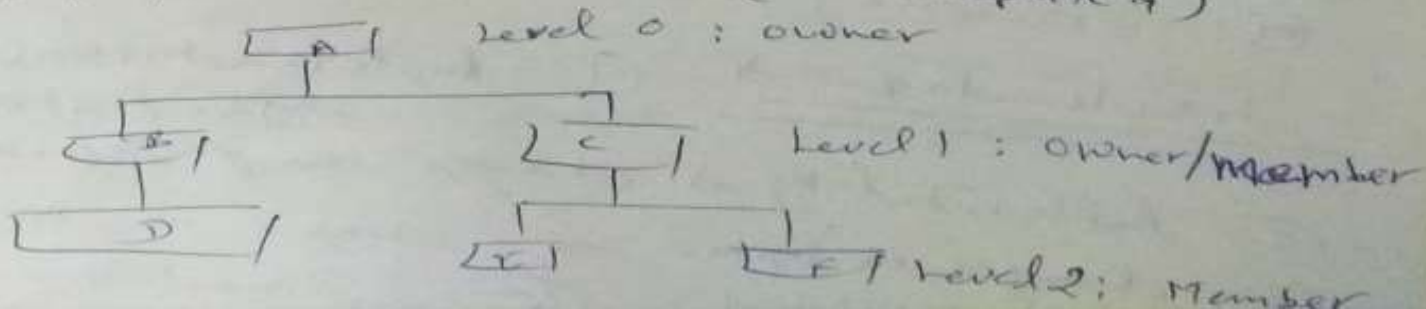 A Level 0 : owner
B C Level 1 : owner/member
D E F Level 2 : Member